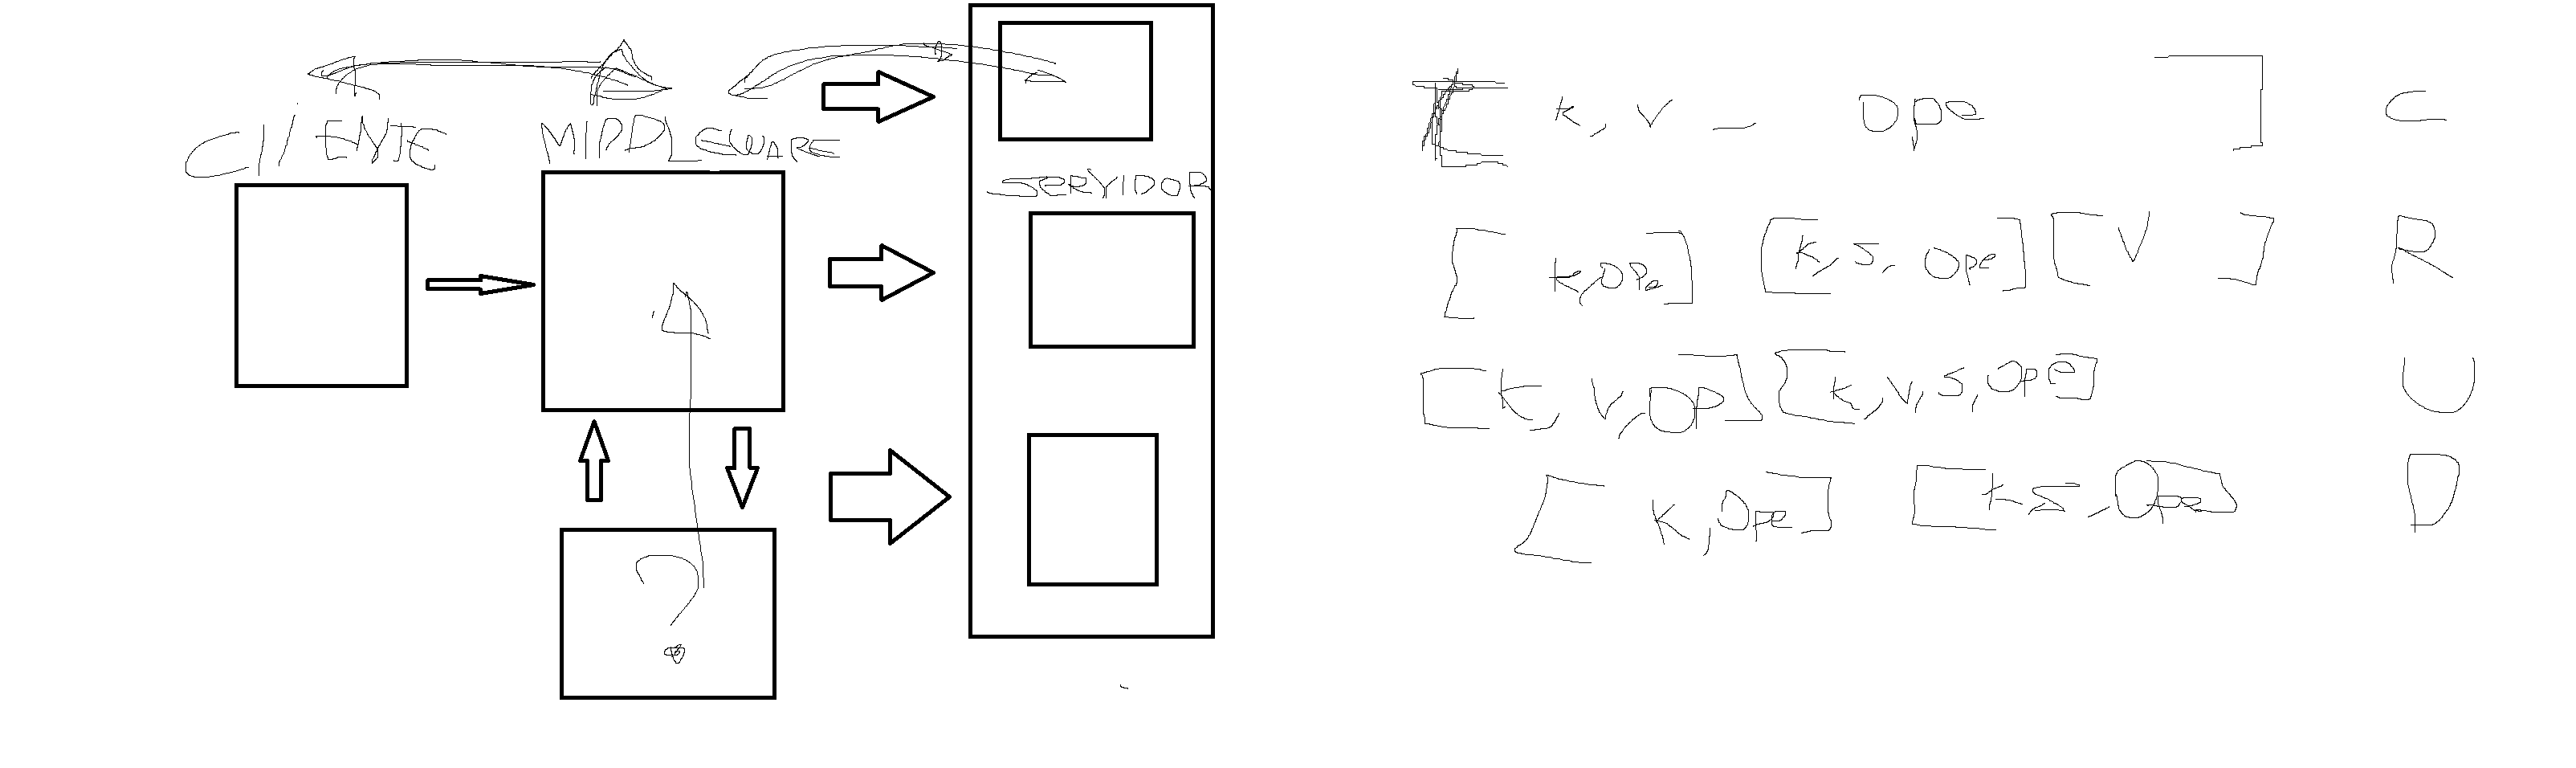 CliENTE
MIDDLEWARE
SERVIDOR
?
[ K, V - Ope ] C
[ K, Ope ] [ K, S, Ope ] [ V ] R
[ K, V, OP ] [ K, V, S, Ope ] U
[ K, Ope ] [ K S, Ope ] D